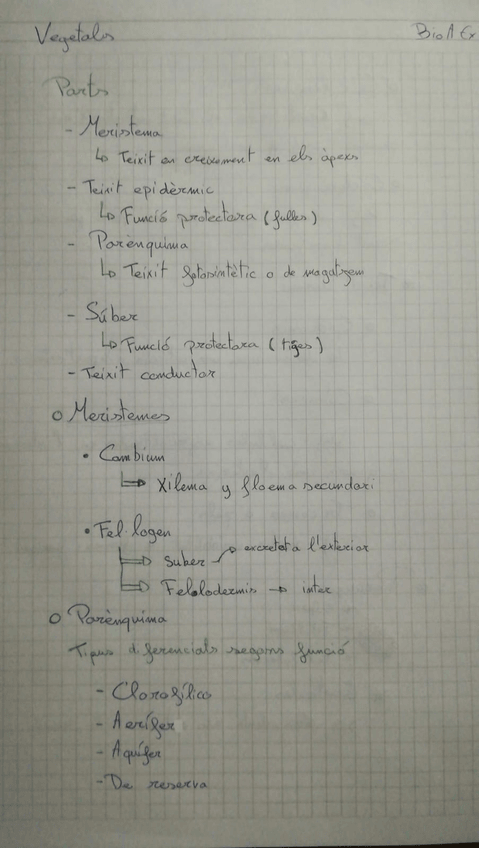 Vegetals
BioA Ex
Parts
- Meristema
↳ Teixit en creixement en els àpexs
- Teixit epidèrmic
↳ Funció protectora (fulles)
- Parènquima
↳ Teixit fotosintètic o de magatzem
- Súber
↳ Funció protectora (tiges)
- Teixit conductor
o Meristemes
• Cambium
↳ Xilema y floema secundari
• Fel·logen
→ Suber → excreta a l'exterior
→ Felolodermis → inter
o Parènquima
Tipus diferencials segons funció
- Clorofílico
- Aerífer
- Aquífer
- De reserva